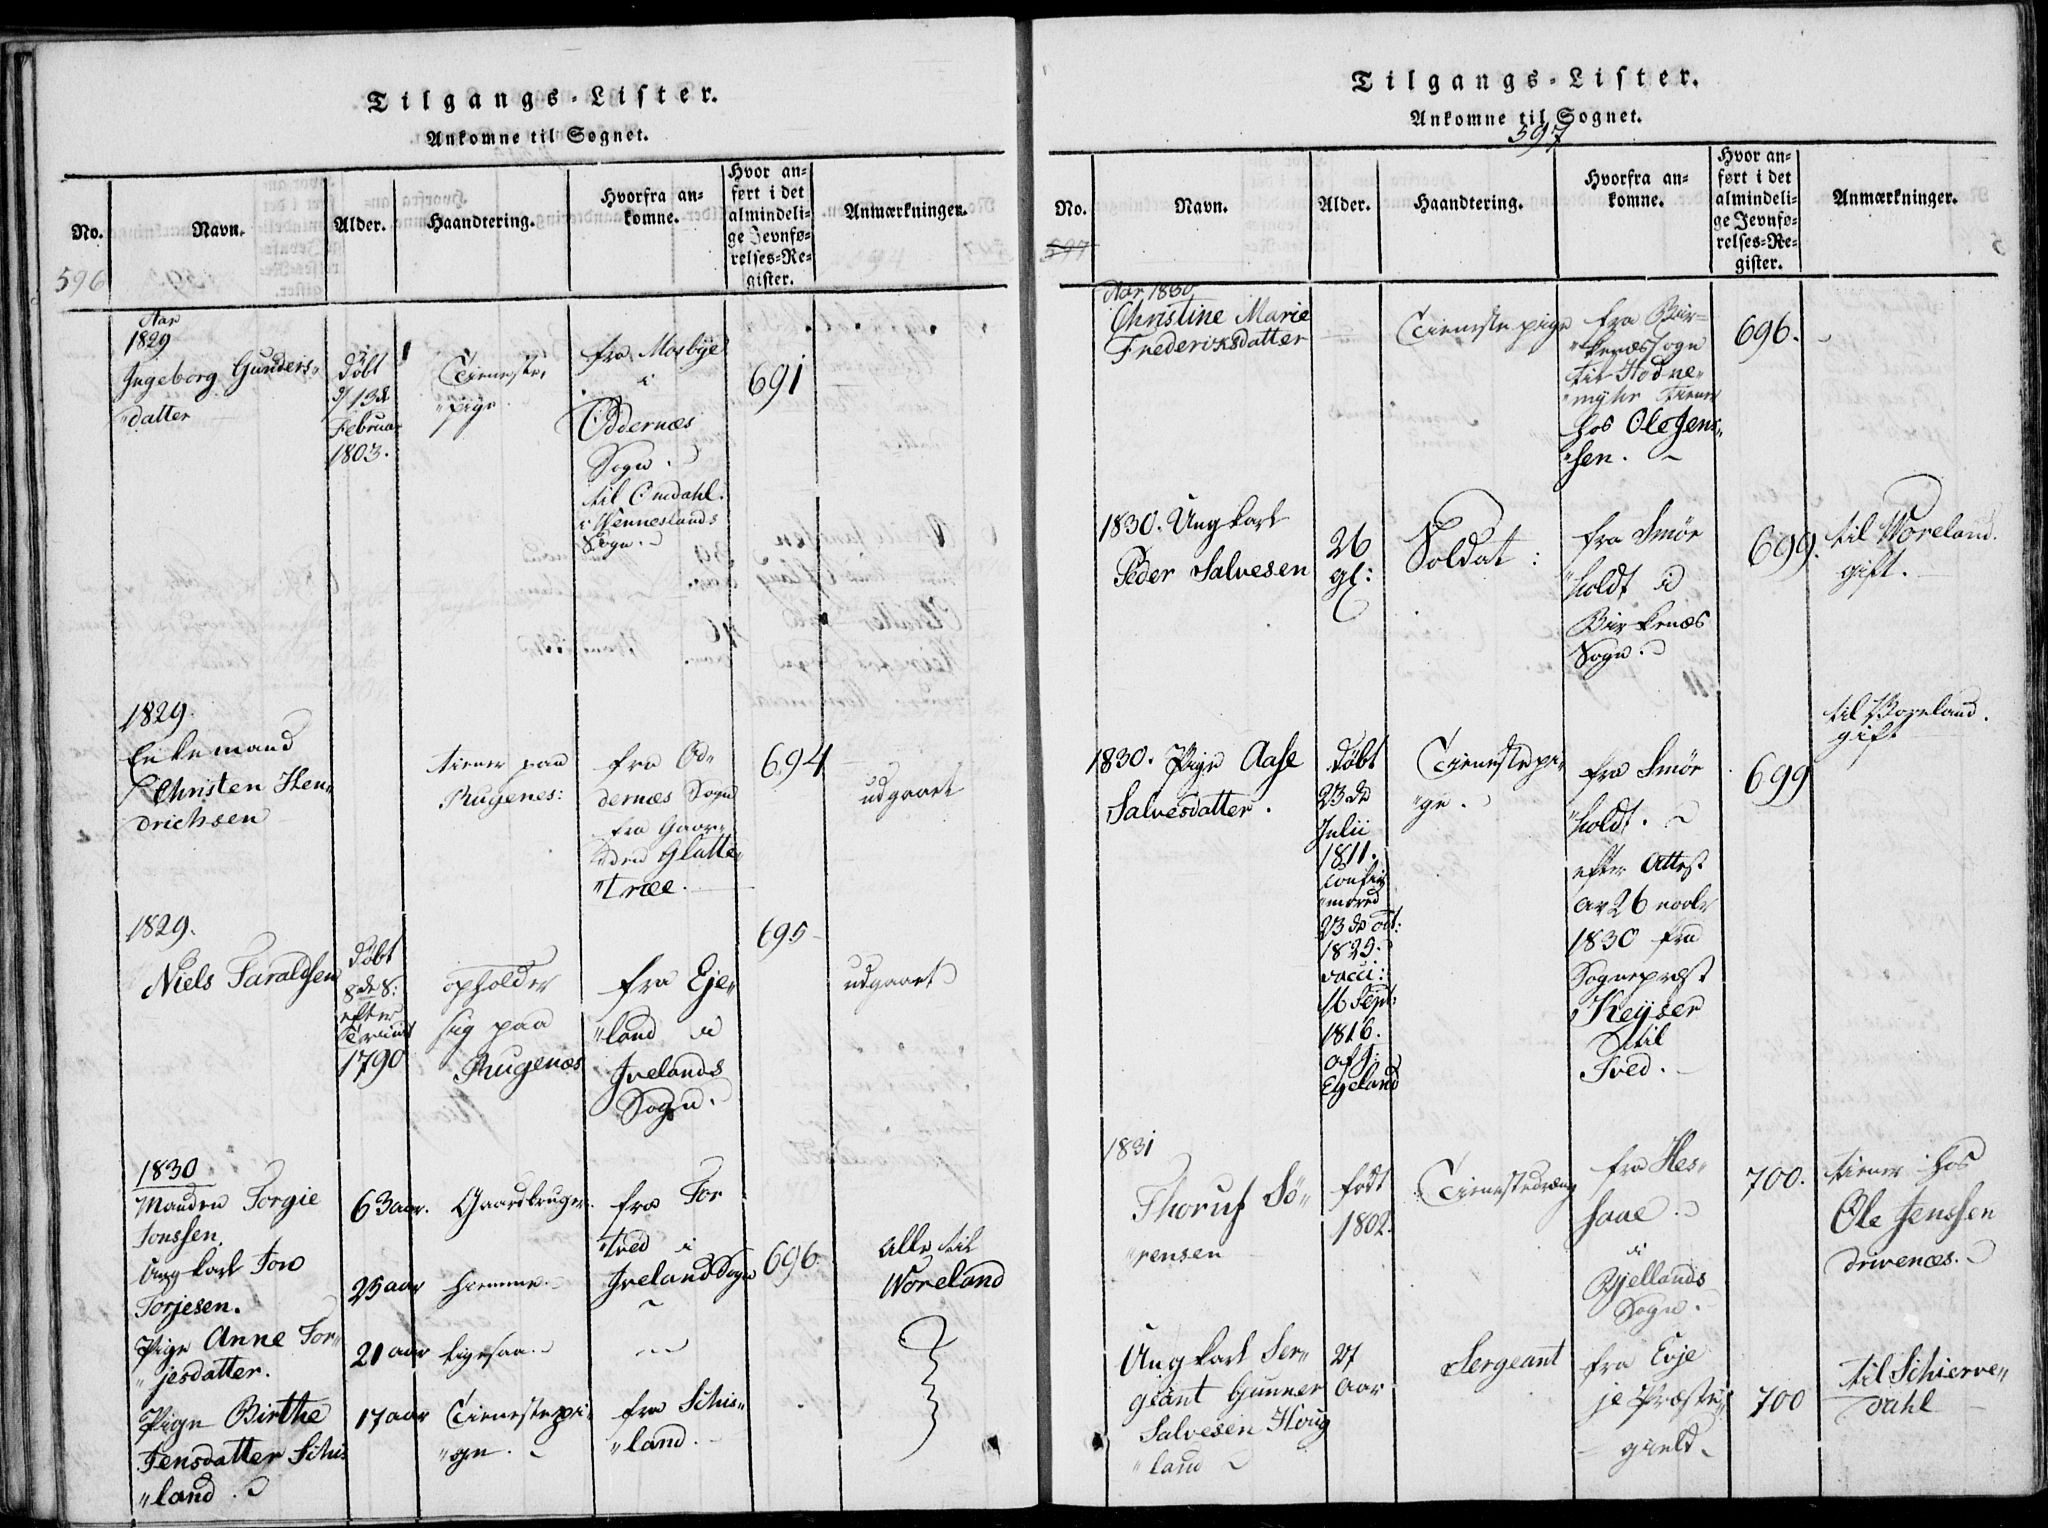 Tilgangs-Lister.
Ankomne til Sognet.
No.
Navn.
Alder.
Haandtering.
Hvorfra an-
komne.
Hvor an-
ført i det
almindeli-
ge Jevnfø-
relses-Re-
gister.
Anmærkninger.
596
Aar
1829
Ingeborg Gunders-
"datter
døbt
d/13de
Februar
1803.
Tieneste-
"pige
fra Mosbye
i
Oddernæs
Sogn.
til Omdahl
i Venneslands
Sogn.
691
1829.
Enkemand
Christen Hen-
drichsen
tiener paa
Rugenes:
fra Od-
dernæs Sogn
fra Gaar-
den Glatte-
"træe.
694
udgaaet
1829.
Niels Taraldsen
døbt
8de S:
efter
Trinit
1790
opholder
sig paa
Rugenæs
fra Eje-
"land i
Ivelands
Sogn.
695
udgaaet
1830
Manden Torgie
Jonssen.
63 aar.
Gaardbruger.
fra Tor
"tved i
Iveland Sogn
696
alle til
Woreland
Ungkarl Jon
Torjesen.
25 aar
hiemme.
Pige Anne Tor-
"jesdatter.
21 aar
ligesaa.
Pige Birthe
Jensdatter Schis
"land.
17 aar
Tienestepi-
"ge.
fra Schis-
"land.
Tilgangs-Lister.
Ankomne til Sognet.
597
No.
Navn.
Alder.
Haandtering.
Hvorfra an-
komne.
Hvor an-
ført i det
almindeli-
ge Jevnfø-
relses-Re-
gister.
Anmærkninger.
597
Aar 1830
Christine Marie
Frederiksdatter
Tienestepige
fra Bir-
"kenæs Sogn
til Hodne-
"myhr tiener
hos Ole Jens-
"sen.
696.
1830. Ungkarl
Peder Salvesen
26
gl:
Soldat:
fra Smør
"holdt i
Birkenæs
Sogn.
699.
til Woreland.
gift.
1830. Pige Aase
Salvesdatter.
døbt
23de
Julii
1811.
confir
"mered
23de oct:
1829.
vacci:
16 Sept:
1816.
af J:
Egeland
Tienestepi-
"ge.
fra Smør
"holdt.
efter Attest
av 26 novbr
1830 fra
Sognepræst
Keyser
til
Tved.
699
til Woreland.
gift
1831
Thorus Sö-
"rensen
født
1802.
Tienestedreng
fra Hes-
"saae.
i
Bjellands
Sogn.
700.
tiener hos
Ole Jenssen
Drivenæs.
Ungkarl Ser-
geant Gunner
Salvesen Houg
"land
27
aar
Sergeant
fra Evje
je Præste-
gield
700
til Schierve-
dahl